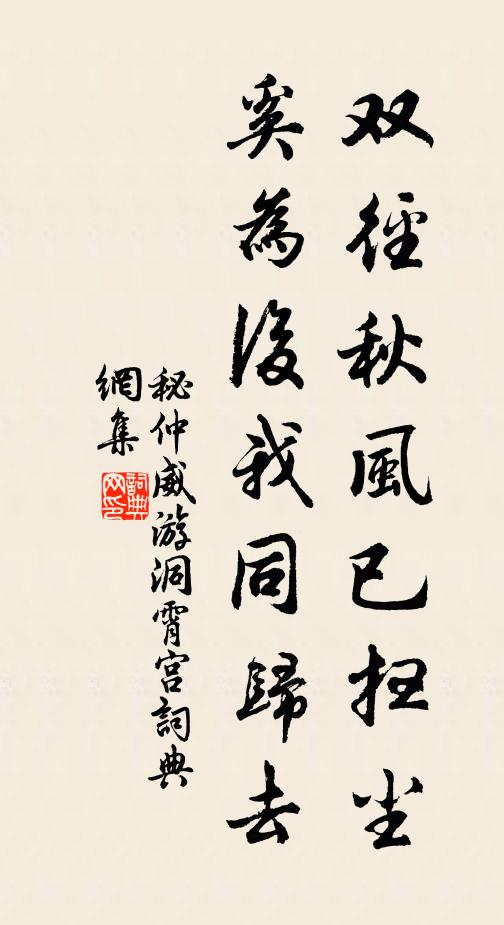 双径秋風已扫尘
奚為後我同歸去
秘仲威游洞霄宮詞典
網集
詞典网印